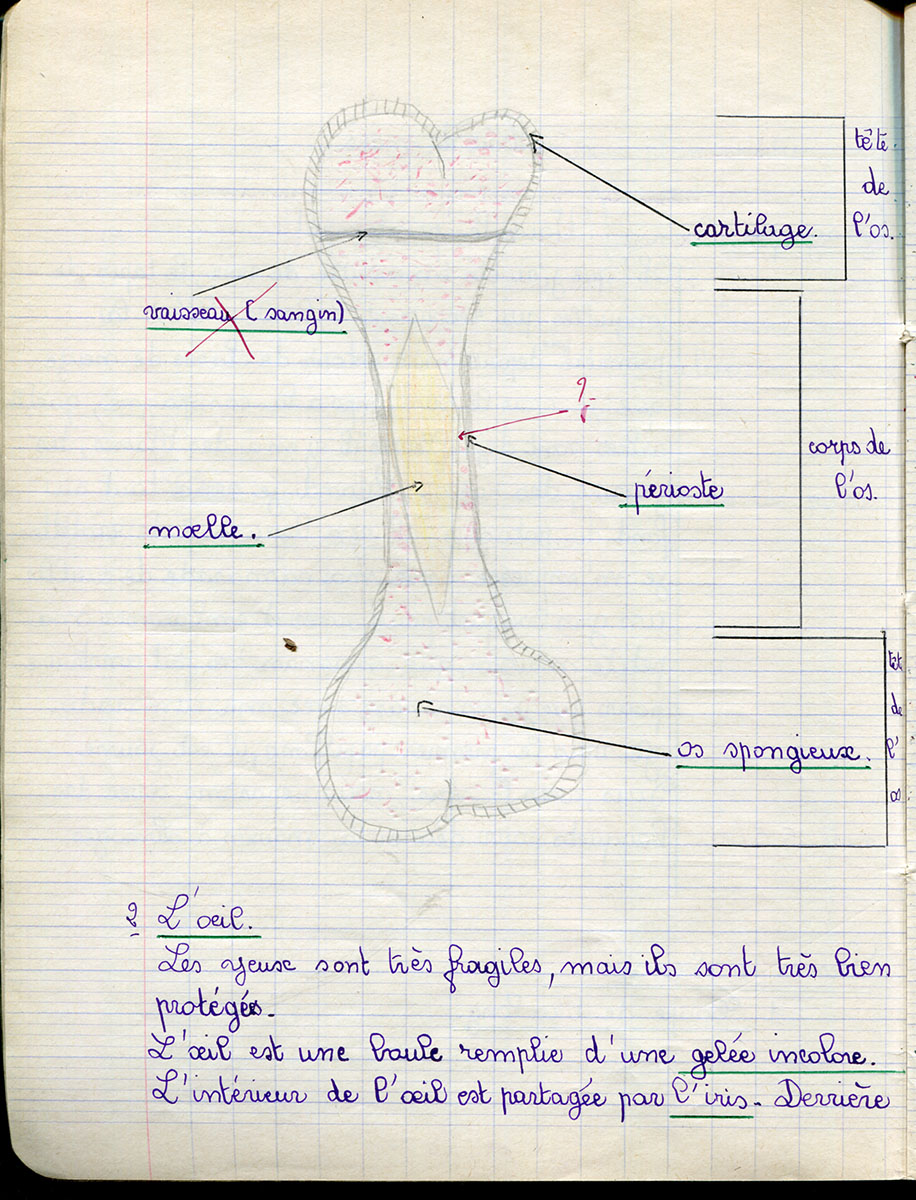 tête
de
l'os.
cartilage.
vaisseau (sangin)
?
périoste
corps de
l'os.
moelle.
os spongieux.
têt
de
l'
os
2 L'œil.
Les yeux sont très fragiles, mais ils sont très bien
protégés.
L'œil est une boule remplie d'une gelée incolore.
L'intérieur de l'œil est partagée par l'iris. Derrière